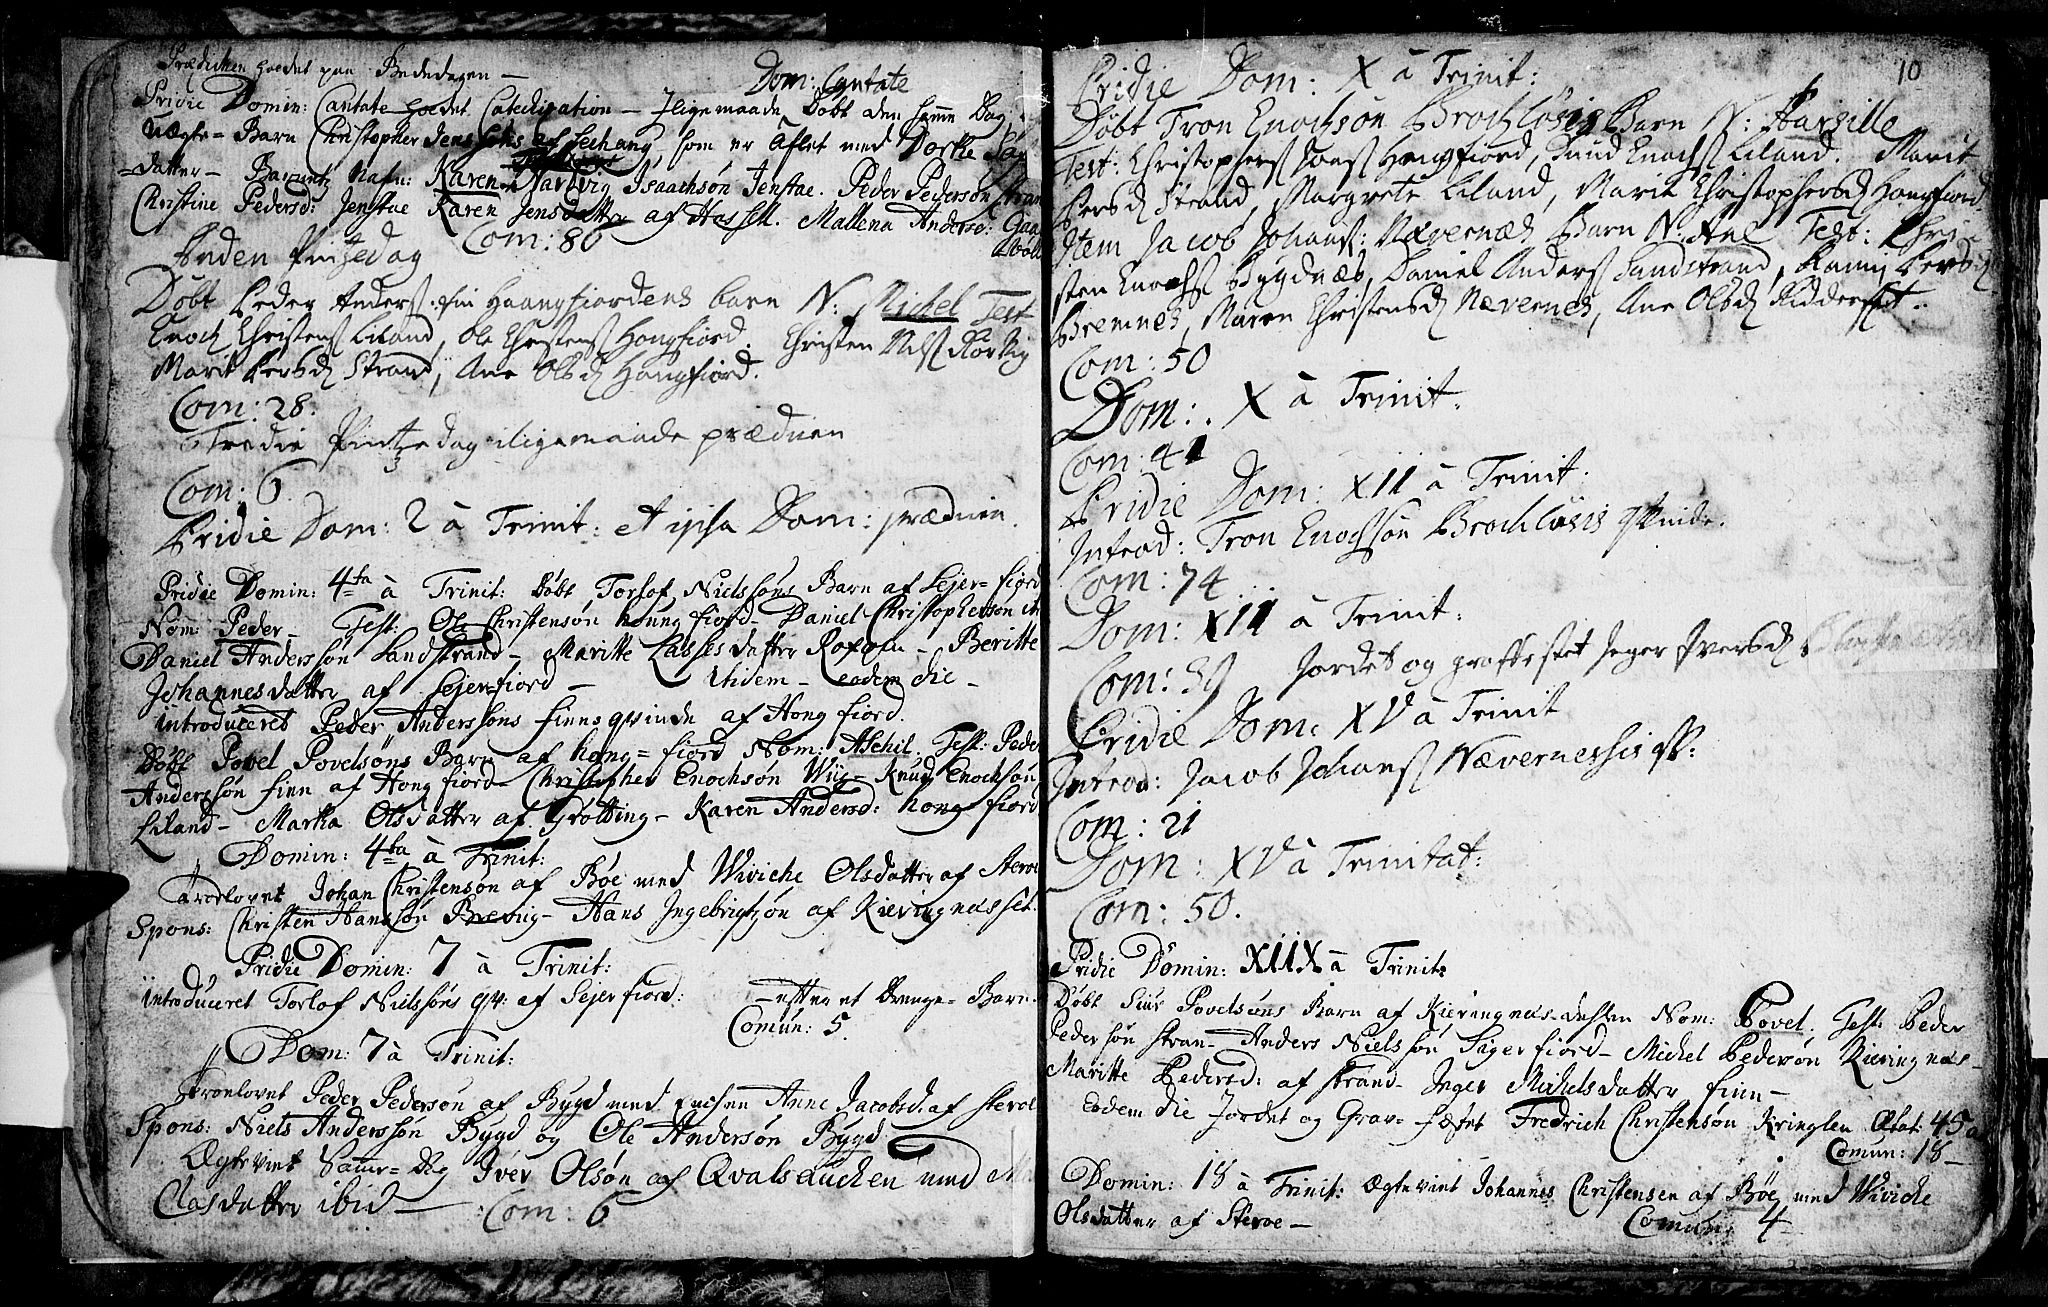 Prædichen hoedes paa Bededagen —
Dom: Cantate
Pridie Domin: Cantate hoedet Catechisation — Iligemaade Døbt den samme Dag
Uægte-Barn Christopher Jens Søns af Seehang — som er Aflet med Dorthe
-datter — Barnetz Nafn: Karen Hartvig Isaachsøn Jenstae. Peder Pedersøn
Christine Pedersd: Jenstae Karen Jensdatter af Hassell. Mallena Andersd:
Com: 86
Anden Pintzedag
Døbt Peder Anders: fin Haangfiordens barn N: Michel Test
Enoch Christens Liland, Ole Christens Hongfiord. Christen Nils
Marit Persd Strand, Ane Olsd Hongfiord.
Com: 28.
Tredie Pintzedag iligemaade præduen
Com: 6.
Pridie Dom: 2 à Trinit: et ipsa Dom: præduen.
Pridie Domin: 4ta à Trinit: Døbt Torlof Nielssøns Barn af Sejer-fiord
Nom: Peder — Test: Ole Christensøn houngfiord — Daniel Christophersøn
Daniel Anderssøn Sandstrand — Maritte Lassesdatter — Beritte
Johannesdatter af Sejerfiord — Ibidem — Eodem die —
introduceret Peder Anderssøns finnsqvinde af Hongfiord.
Døbt Povel Povelsøns Barn af hong-fiord Nom: Aschil. Test: Peder
Anderssøn finn af Hongfiord — Christopher Enochsøn Wiig — Knud Enochsøn
Liland — Martha Olsdatter af Grøtting — Karen Andersd: hongfiord
Domin: 4ta à Trinit:
Trolovet Johan Christensøn af Bøe med Wiviche Olsdatter af Steroe
Spons: Christen Hanssøn Brevig — Hans Ingebrigtsøn af Kieringnæsset.
Pridie Domin: 7 à Trinit:
introduceret Torlof Nielssøns qv: af Sejerfiord: — efter et Drenge-Barn.
Comun: 5.
Dom: 7 à Trinit:
Tronlovet Peder Pedersøn af Bygd med Enchen Anne Jacobsd. af Steroe
Spons: Niels Anderssøn Bygd og Ole Andersøn Bygd
Ægteviet Samme-Dag Iver Olsøn af Qvalsauchen med
Clasdatter ibid — Com: 6
10
Pridie Dom: X à Trinit:
Døbt Tron Enochsøn Brochløsis Barn N:
Test: Christophers Hongfiord, Knud Enochs Liland. Marit
Persd Strand, Margrete Liland, Marit Christophersd Hongfiord.
Item Jacob Johans: Nævernæs Barn N. Ane Test: Chri-
sten Enochs Bygdnæs, Daniel Anders Sandstrand, Persd
Bremnes, Maren Christensd Nævernes, Ane Olsd
Com: 50
Dom: X à Trinit.
Com: 41
Pridie Dom: XII à Trinit:
Introd: Tron Enochsøn Brochløsis Qvinde.
Com: 74
Dom: XII à Trinit:
Com: 39 Jordet og graffestet Jeger Iversd
Pridie Dom: XV à Trinit
Introd: Jacob Johans Nævernessis qv:
Com: 21
Dom: XV à Trinitat:
Com: 50.
Pridie Domin: XIIX à Trinit:
Døbt Siur Povelsøns Barn af Kieringnæs Nom: Povel. Test: Peder
Pedersøn Stran — Anders Nielssøn Sigerfiord — Michel Pedersøn Kieringnæs —
Maritte Pedersd: af Strand — Inger Michelsdatter finn —
Eodem die Jordet og Grav-fæstet Fredrich Christensøn Kringlen Ætat: 45
Comun: 18 —
Domin: 18 à Trinit: Ægteviet Johannes Christensen af Bøe med Wiviche
Olsdatter af Steroe —
Comun: 4